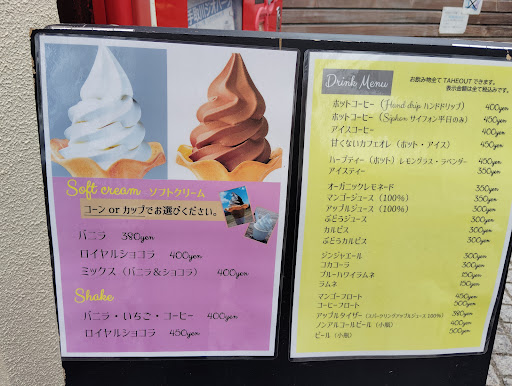 Soft cream ソフトクリーム
コーン or カップでお選びください。
バニラ 380yen
ロイヤルショコラ 400yen
ミックス（バニラ&ショコラ） 400yen
Shake
バニラ・いちご・コーヒー 400yen
ロイヤルショコラ 450yen
Drink Menu
お飲み物全て TAKEOUT できます。
表示金額は全て税込みです。
ホットコーヒー（Hand drip ハンドドリップ） 400yen
ホットコーヒー（Siphon サイフォン平日のみ） 450yen
アイスコーヒー 400yen
甘くないカフェオレ（ホット・アイス） 450yen
ハーブティー（ホット）レモングラス・ラベンダー 450yen
アイスティー 350yen
オーガニックレモネード 350yen
マンゴージュース（100%） 350yen
アップルジュース（100%） 300yen
ぶどうジュース 300yen
カルピス 300yen
ぶどうカルピス 300yen
ジンジャエール 300yen
コカコーラ 300yen
ブルーハワイラムネ 150yen
ラムネ 150yen
マンゴーフロート 450yen
コーヒーフロート 500yen
アップルタイザー（スパークリングアップルジュース 100%） 380yen
ノンアルコールビール（小瓶） 400yen
ビール（小瓶） 500yen